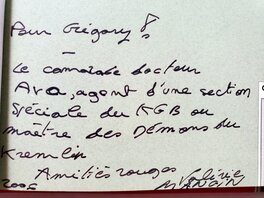 Pour Grégory !
Le camarade docteur
Ava, agent d'une section
spéciale du KGB ou
maître des Démons du
Kremlin
Amitiés rouges
2005 Valérie
MANGIN